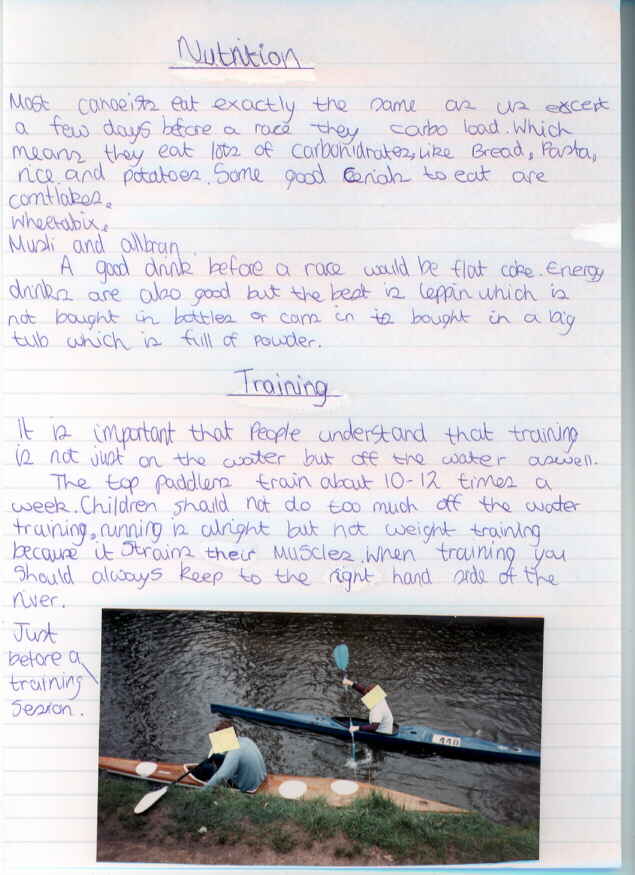 Nutrition
Most canoeists eat exactly the same as us except
a few days before a race they carbo load. Which
means they eat lots of carbonidrates, like Bread, Pasta,
rice and potatoes. Some good Cerials to eat are
cornflakes,
Wheetabix,
Musli and allbran.
A good drink before a race would be flat coke. Energy
drinks are also good but the best is leppin which is
not bought in bottles or cans in is bought in a big
tub which is full of powder.
Training
It is important that People understand that training
is not just on the water but off the water aswell.
The top paddlers train about 10-12 times a
week. Children should not do too much off the water
training, running is alright but not weight training
because it strains their muscles. When training you
should always keep to the right hand side of the
river.
Just
before a
training
session.
440